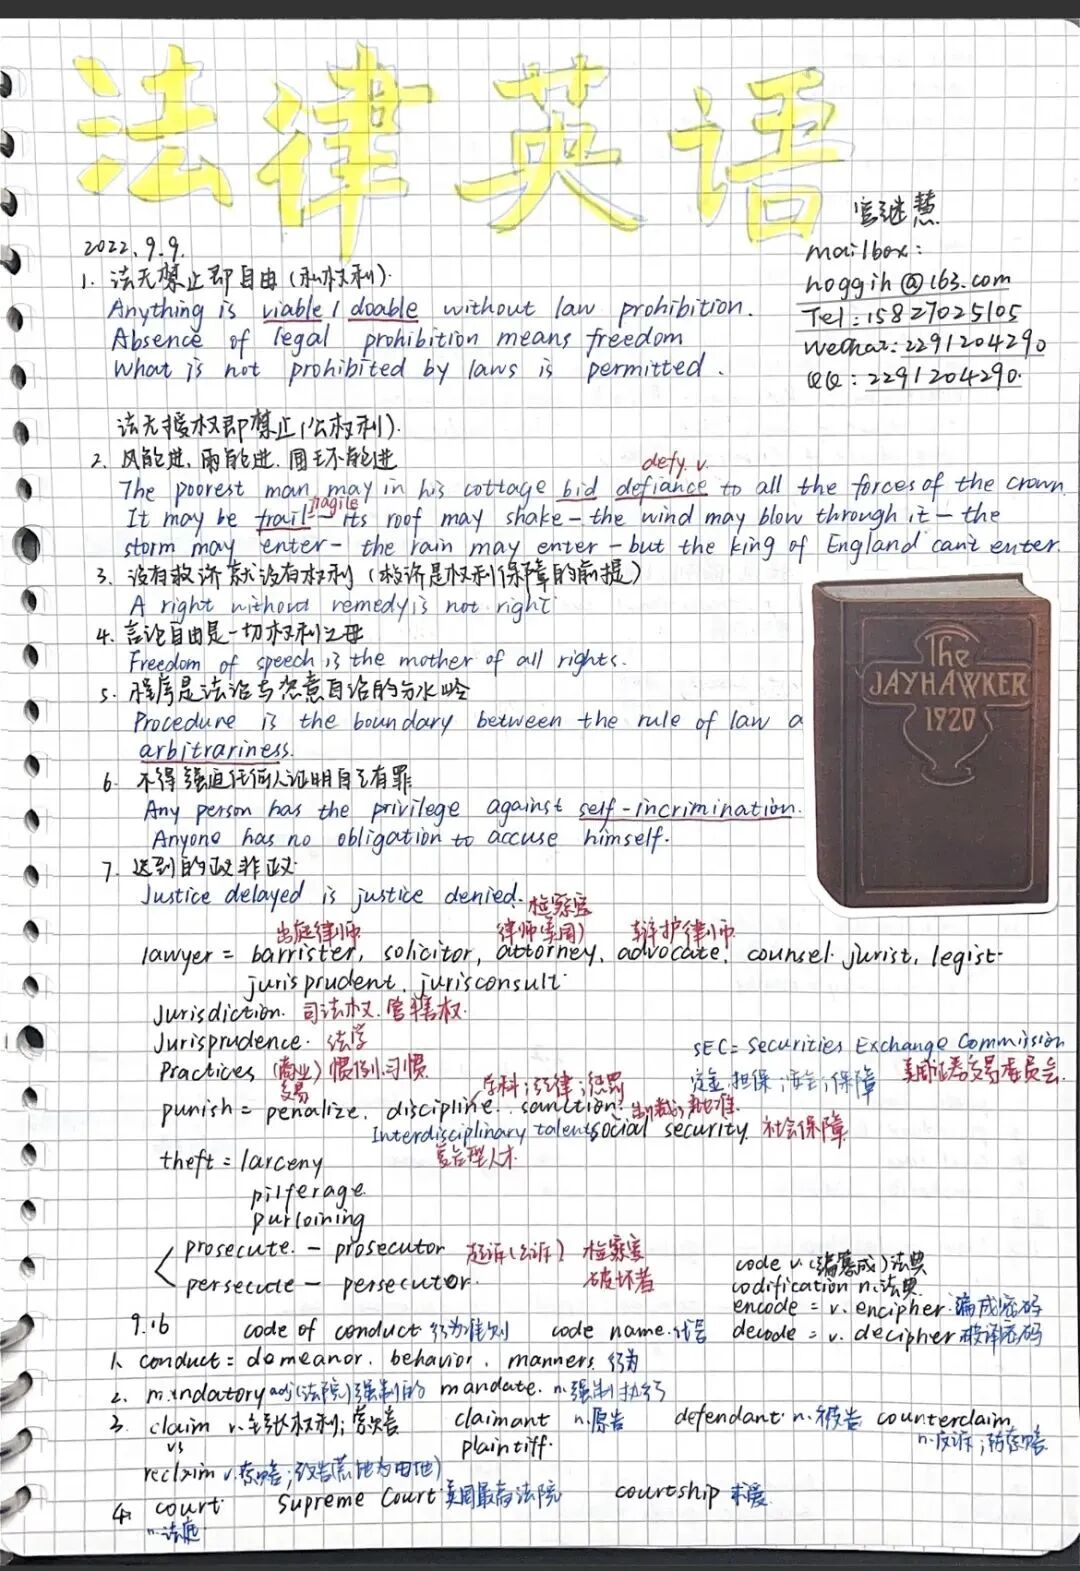 法律英语
管继慧
2022.9.9.
mailbox:
1. 法无禁止即自由(私权利).
hoggih@163.com
Anything is viable/doable without law prohibition.
Tel:15827025105
Absence of legal prohibition means freedom
Wechat:2291204290
What is not prohibited by laws is permitted.
QQ:2291204290.
法无授权即禁止(公权利).
2. 风能进,雨能进,国王不能进
defy. v.
The poorest man may in his cottage bid defiance to all the forces of the crown.
fragile
It may be frail - its roof may shake - the wind may blow through it - the
storm may enter - the rain may enter - but the king of England can't enter.
3. 没有救济就没有权利(救济是权利保障的前提)
A right without remedy is not right.
4. 言论自由是一切权利之母
Freedom of speech is the mother of all rights.
5. 程序是法治与恣意自治的分水岭
Procedure is the boundary between the rule of law a
arbitrariness.
6. 不得强迫任何人证明自己有罪
Any person has the privilege against self-incrimination.
Anyone has no obligation to accuse himself.
7. 迟到的正义非正义
Justice delayed is justice denied.
检察官
出庭律师 律师(美国) 辩护律师
lawyer = barrister, solicitor, attorney, advocate, counsel. jurist, legist.
jurisprudent, jurisconsult.
Jurisdiction. 司法权.管辖权.
Jurisprudence. 法学
SEC = Securities Exchange Commission
Practices (商业)惯例.习惯
美国证券交易委员会.
交易
学科;法律;惩罚
定金;担保;安全;保障
punish = penalize. discipline. sanction. 制裁;批准.
Interdisciplinary talent social security. 社会保障.
复合型人才
theft = larceny
pilferage
purloining
prosecute. - prosecutor 起诉(公诉) 检察官
persecute - persecutor. 破坏者
code v.(编纂成)法典
codification n.法典.
encode = v. encipher.编成密码
9.16 code of conduct 行为准则 code name.代号 decode = v. decipher 破译密码
1. conduct = demeanor. behavior. manners. 行为
2. mandatory adj(法院)强制的 mandate. n.强制执行
3. claim v.主张权利;索赔 claimant n.原告 defendant. n.被告 counterclaim
vs plaintiff. n.反诉;
reclaim v.索赔;(改造荒地为田地)
4. court. Supreme Court.美国最高法院 courtship 求爱
n.法庭
The
JAYHAWKER
1920